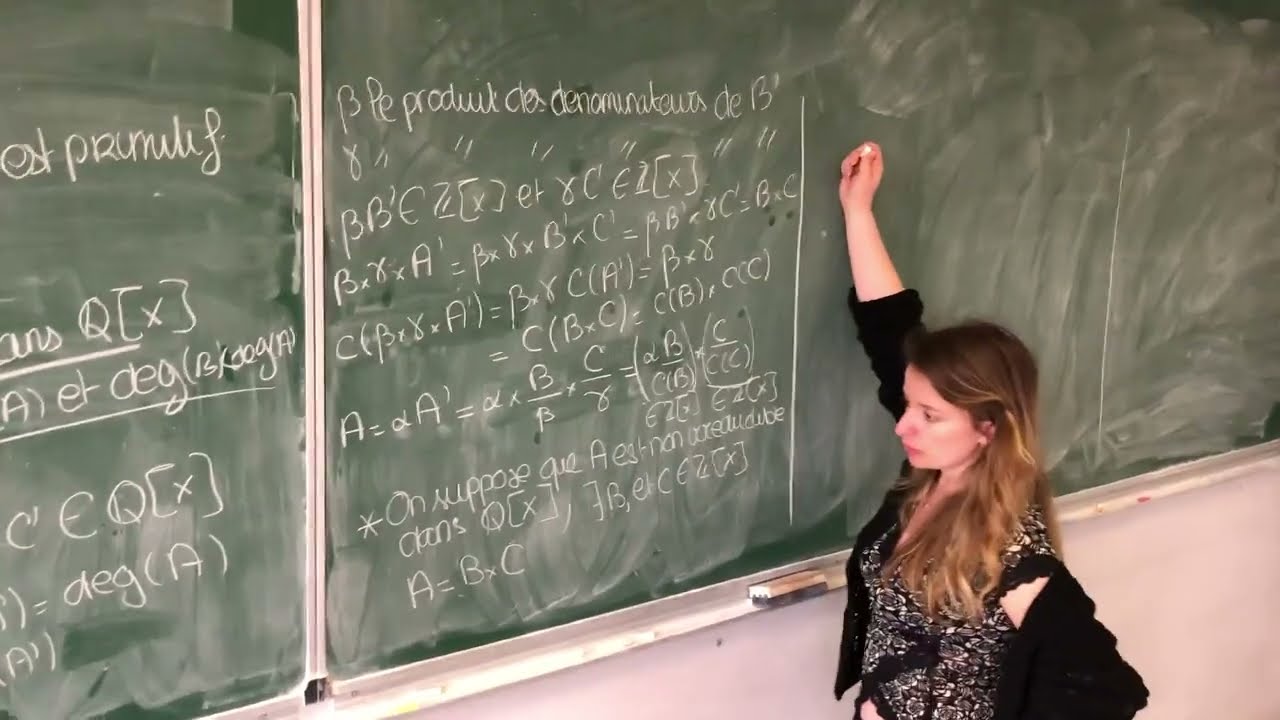 est primitif.
dans Q[x]
(A) et deg(B)<deg(A)
C' ∈ Q[x]
') = deg(A)
(A')
β le produit des dénominateurs de B'
γ " " " " " "
βB' ∈ Z[x] et γC' ∈ Z[x]
β×γ×A' = β×γ×B'×C' = βB'×γC' = B×C
C(β×γ×A') = β×γ C(A') = β×γ
= C(B×C) = C(B)×C(C)
A = αA' = α × B/β × C/γ = (αB/C(B)) × (C/C(C))
∈ Z[x] ∈ Z[x]
* On suppose que A est non irréductible
dans Q[x], ∃ B, et C ∈ Z[x]
A = B×C